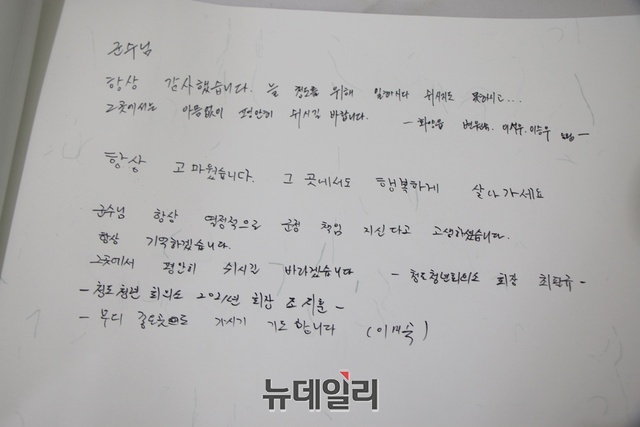 군수님
항상 감사했습니다. 늘 청도를 위해 일하시다 쉬지도 못하시고...
그곳에서는 아픔없이 편안히 쉬시길 바랍니다.
- 화양읍 이승우 -
항상 고마웠습니다. 그 곳에서도 행복하게 살아가세요
군수님 항상 열정적으로 군정 책임 지신다고 고생하셨습니다.
항상 기억하겠습니다.
그곳에서 편안히 쉬시길 바라겠습니다 - 청도청년회의소 회장 최환규 -
- 청도청년회의소 2021년 회장 조지훈 -
- 부디 좋은곳으로 가시기 기도합니다 (이재욱)
뉴데일리